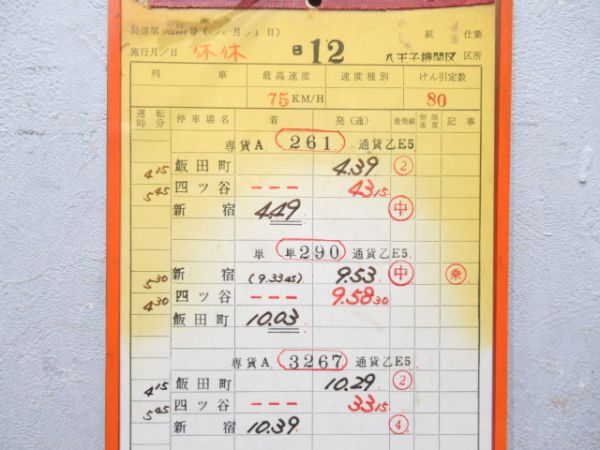 局達第 号( 月 日) 組 仕業
施行月/日 休休 B12 八王子機関区 区所
列車 最高速度 速度種別 けん引定数
75KM/H 80
運転時分 停車場名 着 発(通) 着発線 制限速度 記事
専貨A 261 通貨乙E5
4 15 飯田町 4.39 ②
5 45 四ツ谷 --- 43 15
新宿 4.49 中
単 単290 通貨乙E5
5 30 新宿 (9.33 45) 9.53 中 乗
4 30 四ツ谷 --- 9.58 30
飯田町 10.03
専貨A 3267 通貨乙E5
4 15 飯田町 10.29 ②
5 45 四ツ谷 --- 33 15
新宿 10.39 ④